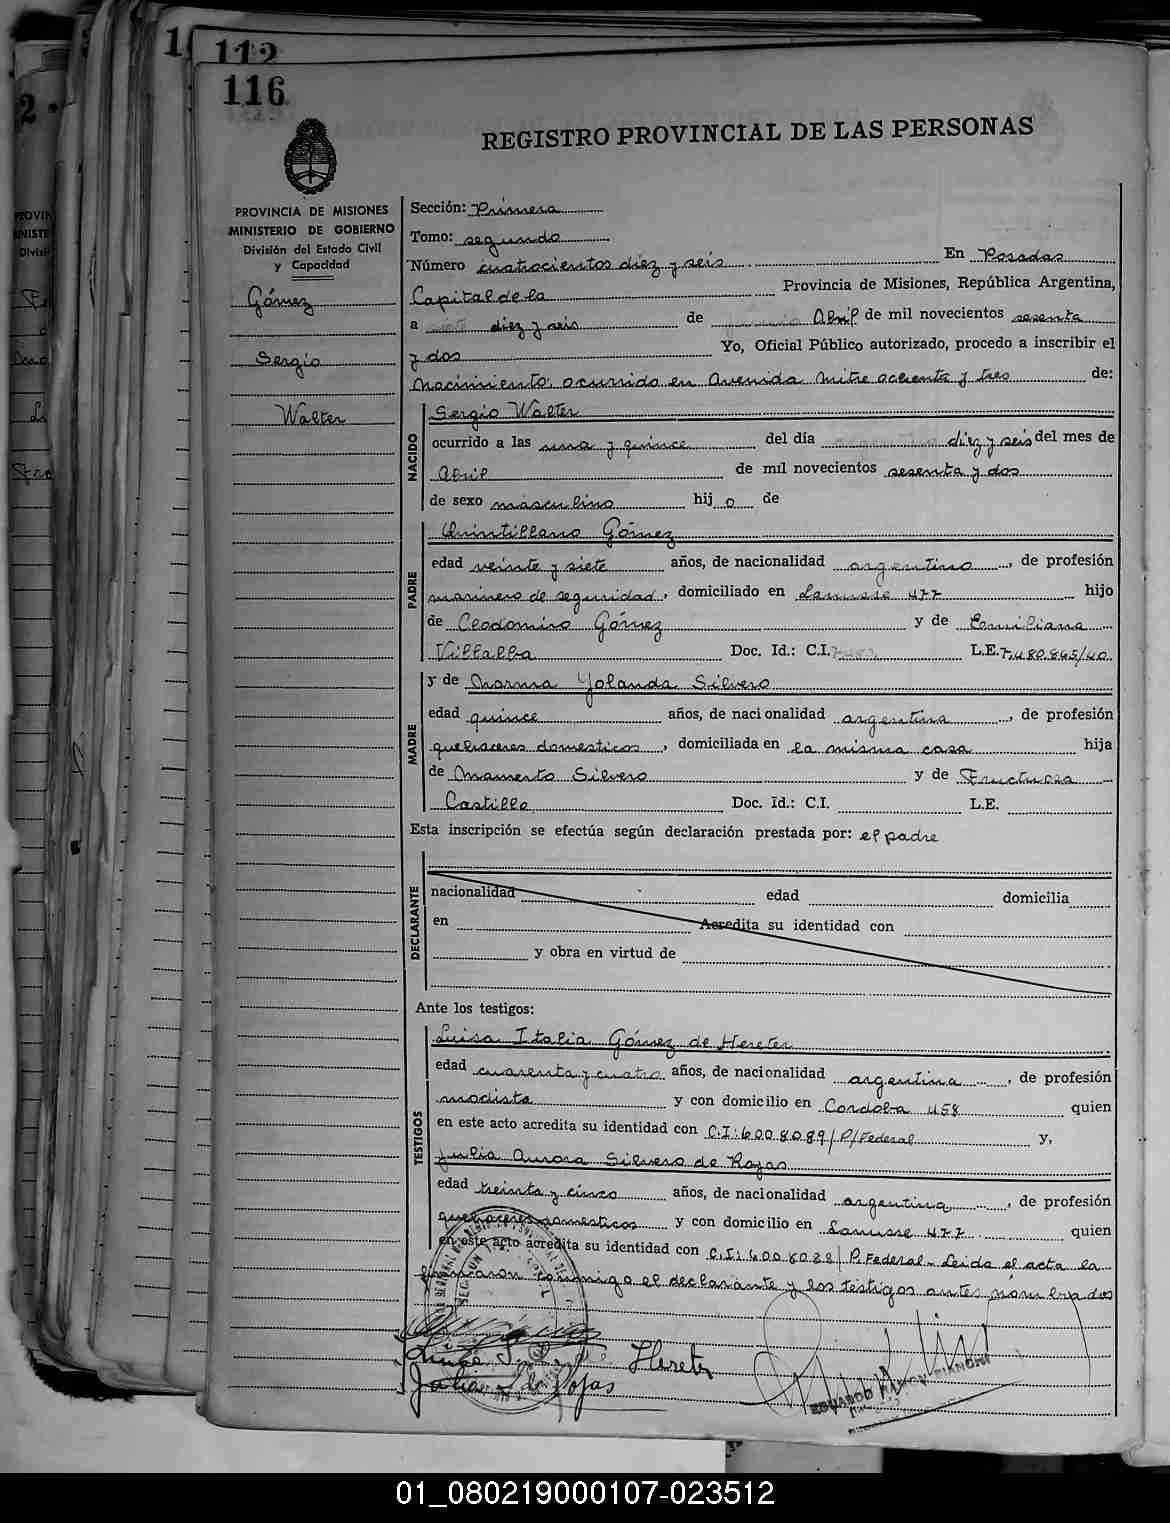 112
116
REGISTRO PROVINCIAL DE LAS PERSONAS
PROVINCIA DE MISIONES
MINISTERIO DE GOBIERNO
División del Estado Civil
y Capacidad
Gómez
Sergio
Walter
Sección: Primera
Tomo: segundo
Número cuatrocientos diez y seis En Posadas
Capital de la Provincia de Misiones, República Argentina,
a diez y seis de Abril de mil novecientos sesenta
y dos Yo, Oficial Público autorizado, procedo a inscribir el
Nacimiento, ocurrido en Avenida Mitre ochenta y tres de:
NACIDO
Sergio Walter
ocurrido a las una y quince del día diez y seis del mes de
Abril de mil novecientos sesenta y dos
de sexo masculino hij o de
PADRE
Quintiliano Gómez
edad veinte y siete años, de nacionalidad argentino, de profesión
marinero de seguridad, domiciliado en Lanusse 477 hijo
de Clodomiro Gómez y de Emiliana
Villalba Doc. Id.: C.I. L.E. 7.480.865/40
MADRE
y de Norma Yolanda Silvero
edad quince años, de nacionalidad argentina, de profesión
quehaceres domesticos, domiciliada en la misma casa hija
de Mamerto Silvero y de Fructuosa
Castillo Doc. Id.: C.I. L.E.
Esta inscripción se efectúa según declaración prestada por: el padre
DECLARANTE
nacionalidad edad domicilia
en Acredita su identidad con
y obra en virtud de
Ante los testigos:
TESTIGOS
Luisa Italia Gómez de Hereter
edad cuarenta y cuatro años, de nacionalidad argentina, de profesión
modista y con domicilio en Cordoba 458 quien
en este acto acredita su identidad con C.I: 6008089/P/Federal y,
Julia Aurora Silvero de Rojas
edad treinta y cinco años, de nacionalidad argentina, de profesión
quehaceres domesticos y con domicilio en Lanusse 477 quien
en este acto acredita su identidad con C.I: 6008088/P. Federal - Leida el acta la
firmaron conmigo el declarante y los testigos antes nombrados
Hereter
Julia S. de Rojas
EDUARDO RAMON
01_080219000107-023512